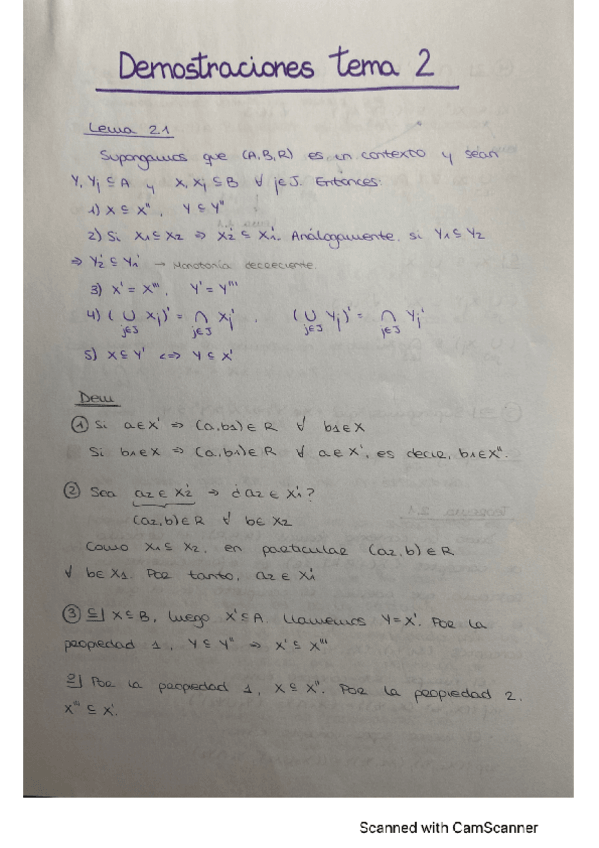 Demostraciones tema 2
Lema 2.1
Supongamos que (A,B,R) es un contexto y sean
Y, Yj ⊆ A y X, Xj ⊆ B ∀ j∈J. Entonces:
1) X ⊆ X'', Y ⊆ Y''
2) Si X1 ⊆ X2 ⇒ X2' ⊆ X1'. Análogamente, si Y1 ⊆ Y2
⇒ Y2' ⊆ Y1' → Monotonía decreciente.
3) X' = X''', Y' = Y'''
4) (∪ Xj)' = ∩ Xj', (∪ Yj)' = ∩ Yj'
j∈J j∈J j∈J j∈J
5) X ⊆ Y' <=> Y ⊆ X'
Dem
① Si a∈X' ⇒ (a,b1)∈R ∀ b1∈X
Si b1∈X ⇒ (a,b1)∈R ∀ a∈X', es decir, b1∈X''.
② Sea a2 ∈ X2' ⇒ ¿a2 ∈ X1'?
(a2,b)∈R ∀ b∈X2
Como X1 ⊆ X2, en particular (a2,b)∈R
∀ b∈X1. Por tanto, a2 ∈ X1'
③ ⊆] X⊆B, luego X'⊆A. Llamemos Y=X'. Por la
propiedad 1, Y ⊆ Y'' ⇒ X' ⊆ X'''
⊇] Por la propiedad 1, X ⊆ X''. Por la propiedad 2,
X''' ⊆ X'.
Scanned with CamScanner